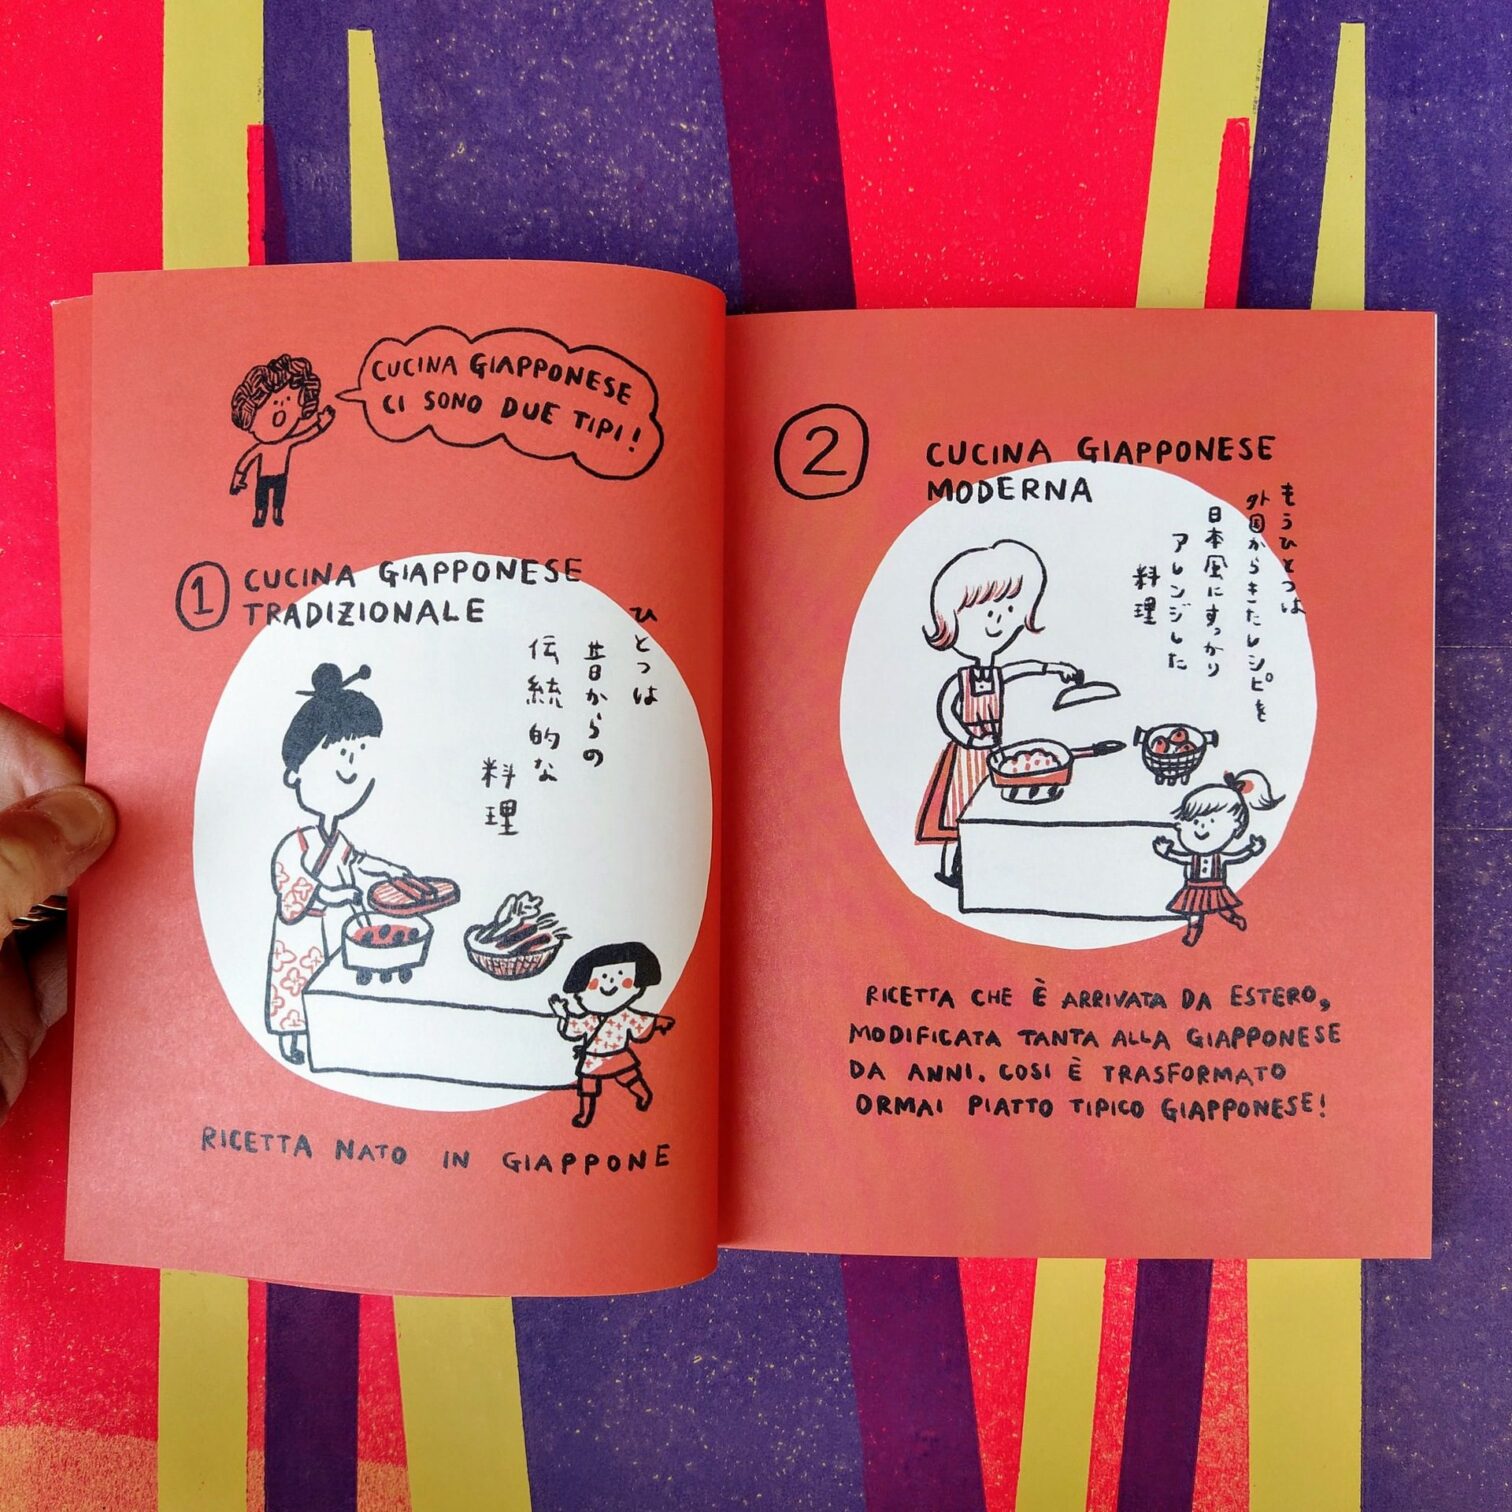 CUCINA GIAPPONESE
CI SONO DUE TIPI!
1
CUCINA GIAPPONESE
TRADIZIONALE
ひとつは
昔からの
伝統的な
料理
RICETTA NATO IN GIAPPONE
2
CUCINA GIAPPONESE
MODERNA
もうひとつは
外国からきたレシピを
日本風にすっかり
アレンジした
料理
RICETTA CHE È ARRIVATA DA ESTERO,
MODIFICATA TANTA ALLA GIAPPONESE
DA ANNI. COSI È TRASFORMATO
ORMAI PIATTO TIPICO GIAPPONESE!